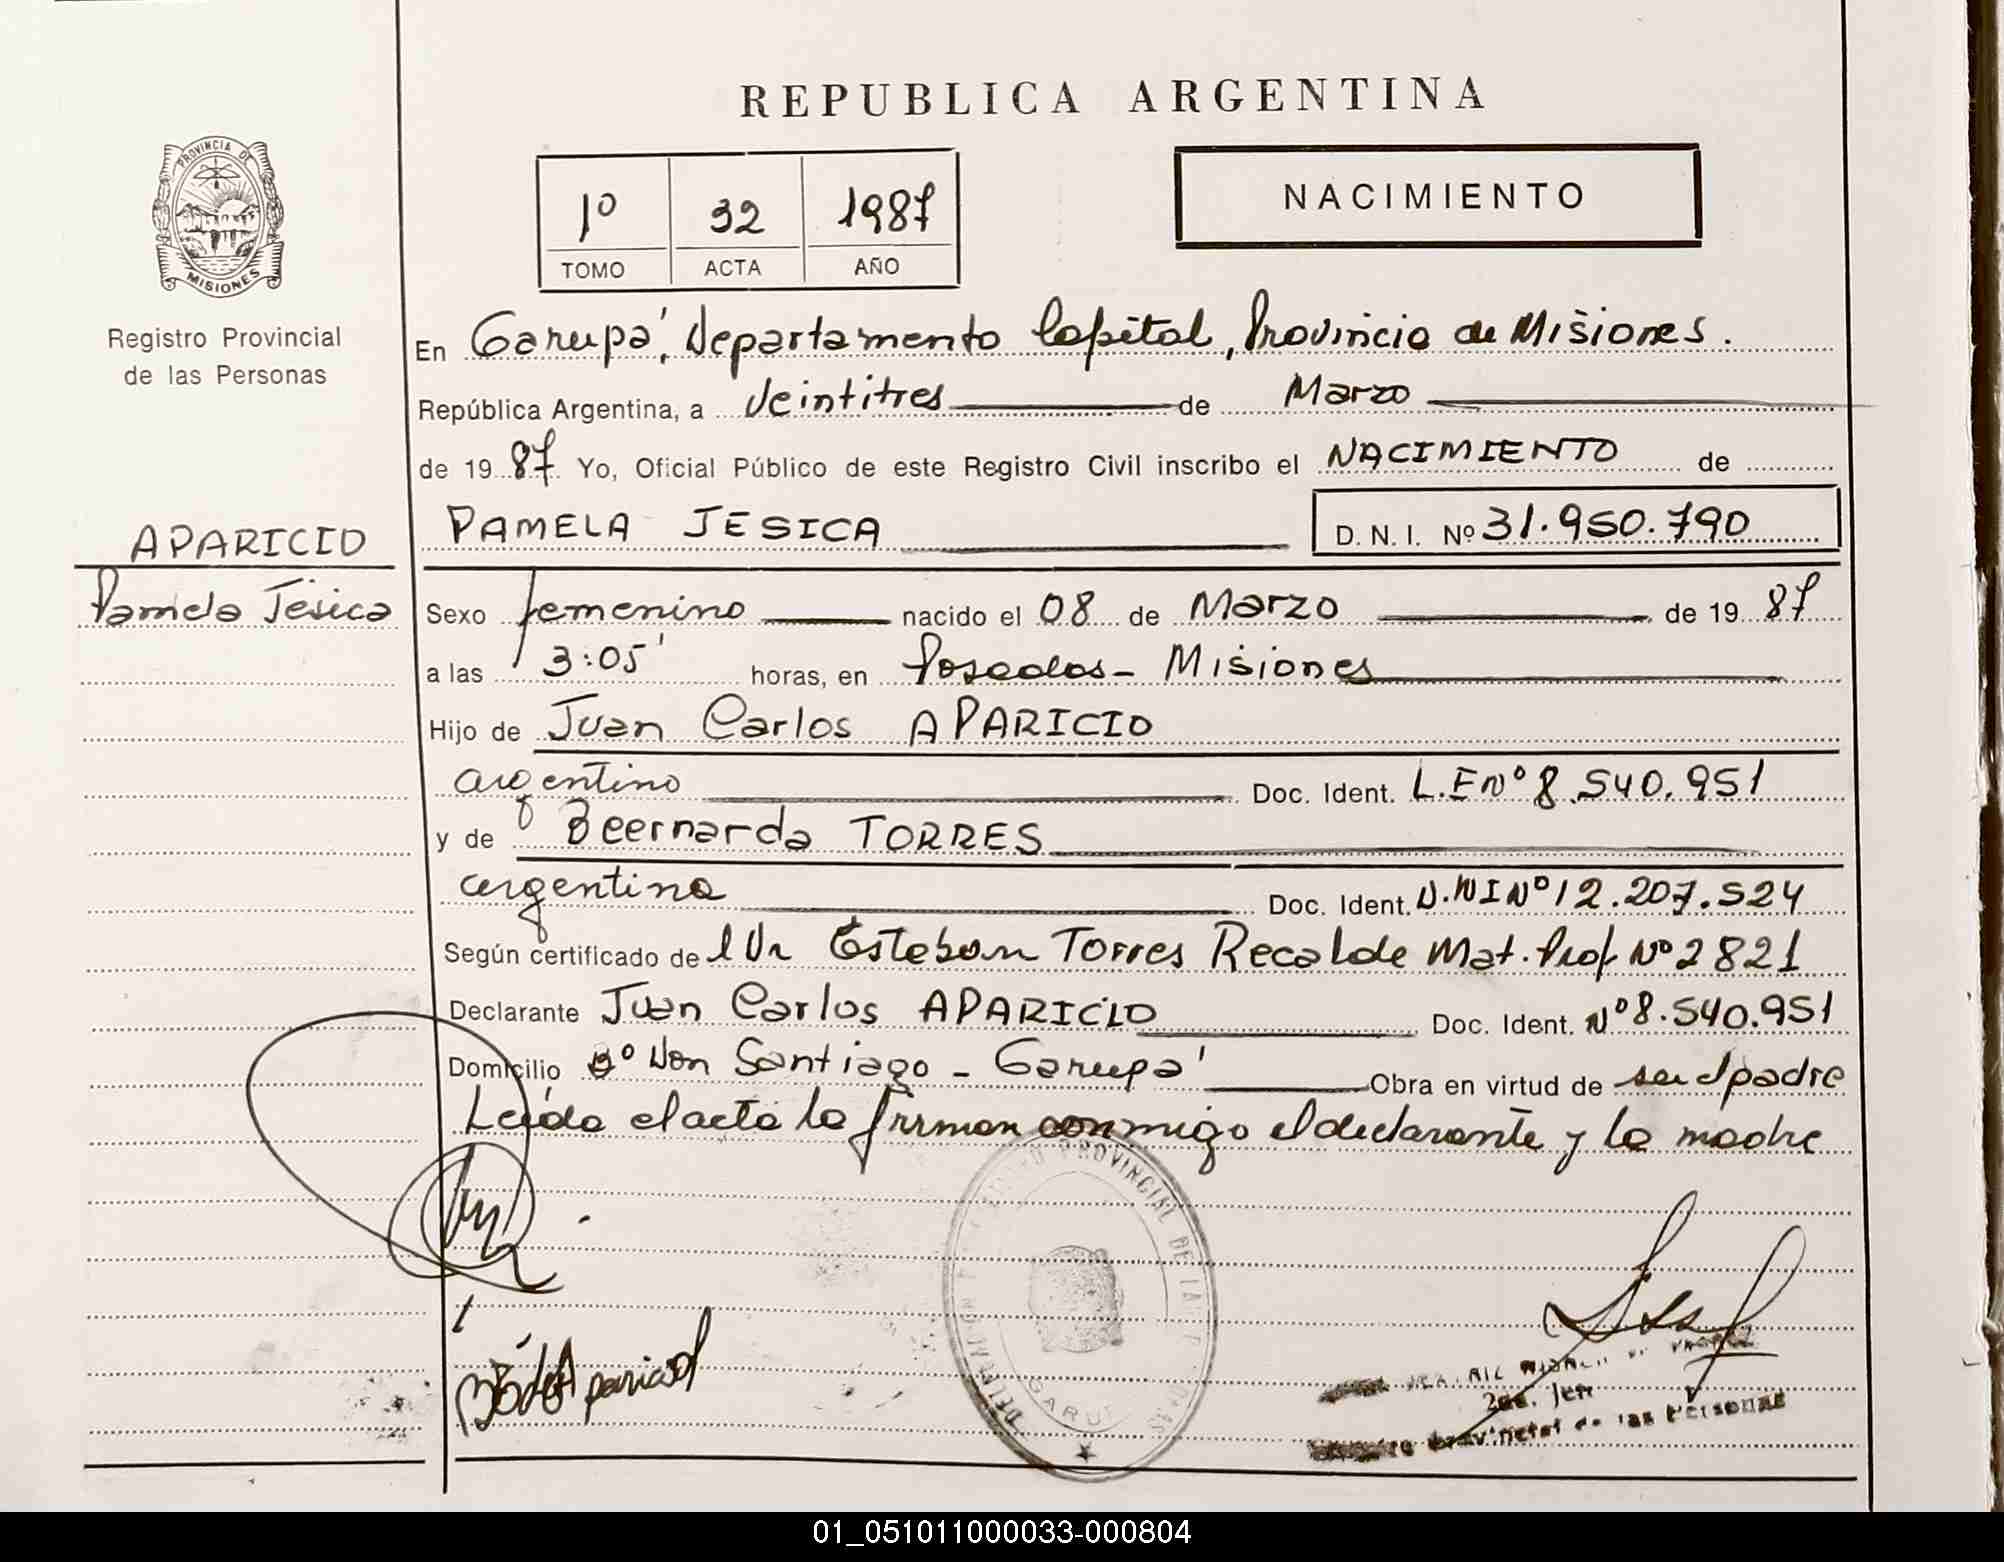 REPUBLICA ARGENTINA
PROVINCIA DE
MISIONES
Registro Provincial
de las Personas
1º 32 1987
TOMO ACTA AÑO
NACIMIENTO
En Garupá, Departamento Capital, Provincia de Misiones.
República Argentina, a Veintitres de Marzo
de 19 87 Yo, Oficial Público de este Registro Civil inscribo el NACIMIENTO de
APARICIO
Pamela Jesica
PAMELA JESICA D. N. I. Nº 31.950.790
Sexo femenino nacido el 08 de Marzo de 19 87
a las 3:05' horas, en Posadas - Misiones
Hijo de Juan Carlos APARICIO
argentino Doc. Ident. L.E Nº 8.540.951
y de Beernarda TORRES
argentina Doc. Ident. D.NI Nº 12.207.524
Según certificado de Esteban Torres Recalde Mat. Prof Nº 2821
Declarante Juan Carlos APARICIO Doc. Ident. Nº 8.540.951
Domicilio Bº Don Santiago - Garupá Obra en virtud de ser el padre
Leída el acta la firman conmigo el declarante y la madre
PROVINCIAL DE LAS
GARU
de las Personas
01_051011000033-000804